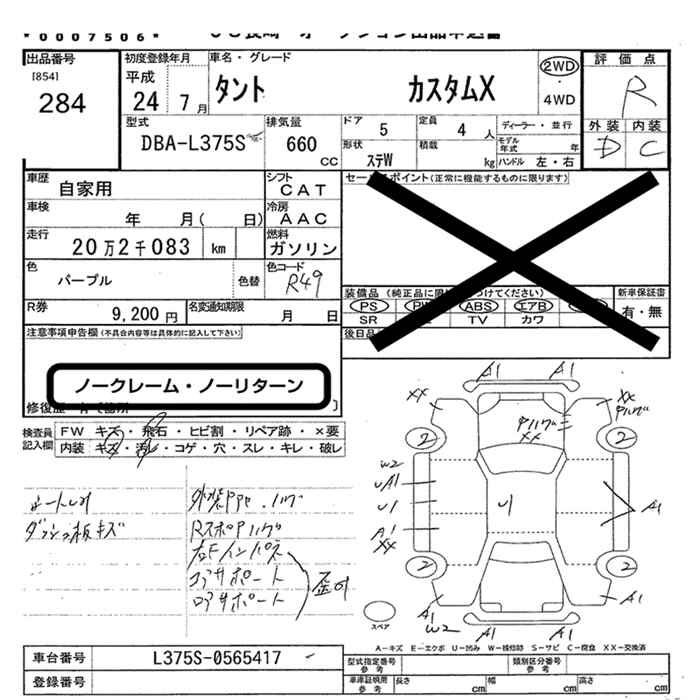 *0007506*
出品番号
[854]
284
初度登録年月
平成
24 7月
車名・グレード
タント カスタムX
2WD
・
4WD
評価点
R
外装 内装
D C
型式
DBA-L375S
排気量
660
CC
ドア
5
定員
4人
ディーラー・並行
モデル年式 年
形状
ステW
積載
kg
ハンドル 左・右
車歴
自家用
シフト
CAT
車検
年 月( 日)
冷房
AAC
走行
20万2千083 km
燃料
ガソリン
色
パープル
色替
色コード
R49
R券
9,200円
名変通知期限
月 日
セールスポイント(正常に機能するものに限ります)
新車保証書
有・無
PS ABS エアB
SR TV カワ
注意事項申告欄(不具合内容等は具体的に記入して下さい)
ノークレーム・ノーリターン
検査員
記入欄
FW キズ・飛石・ヒビ割・リペア跡・×要
内装 キズ・汚レ・コゲ・穴・スレ・キレ・破レ
シートしみ
ダッシュ板キズ
右Fインパネ
コアサポート
ロアサポート
歪み
A1 A1
XX
XX
XX
2 2
W2
UA1
U1
A1
XX
U
A1
2 2
A1
W2
A1 A1
A1
スペア
A-キズ E-エクボ U-凹み W-補修跡 S-サビ C-腐食 XX-交換済
車台番号
L375S-0565417
登録番号
型式指定番号
参考
類別区分番号
参考
車庫証明用
参考
長さ cm
幅 cm
高さ cm